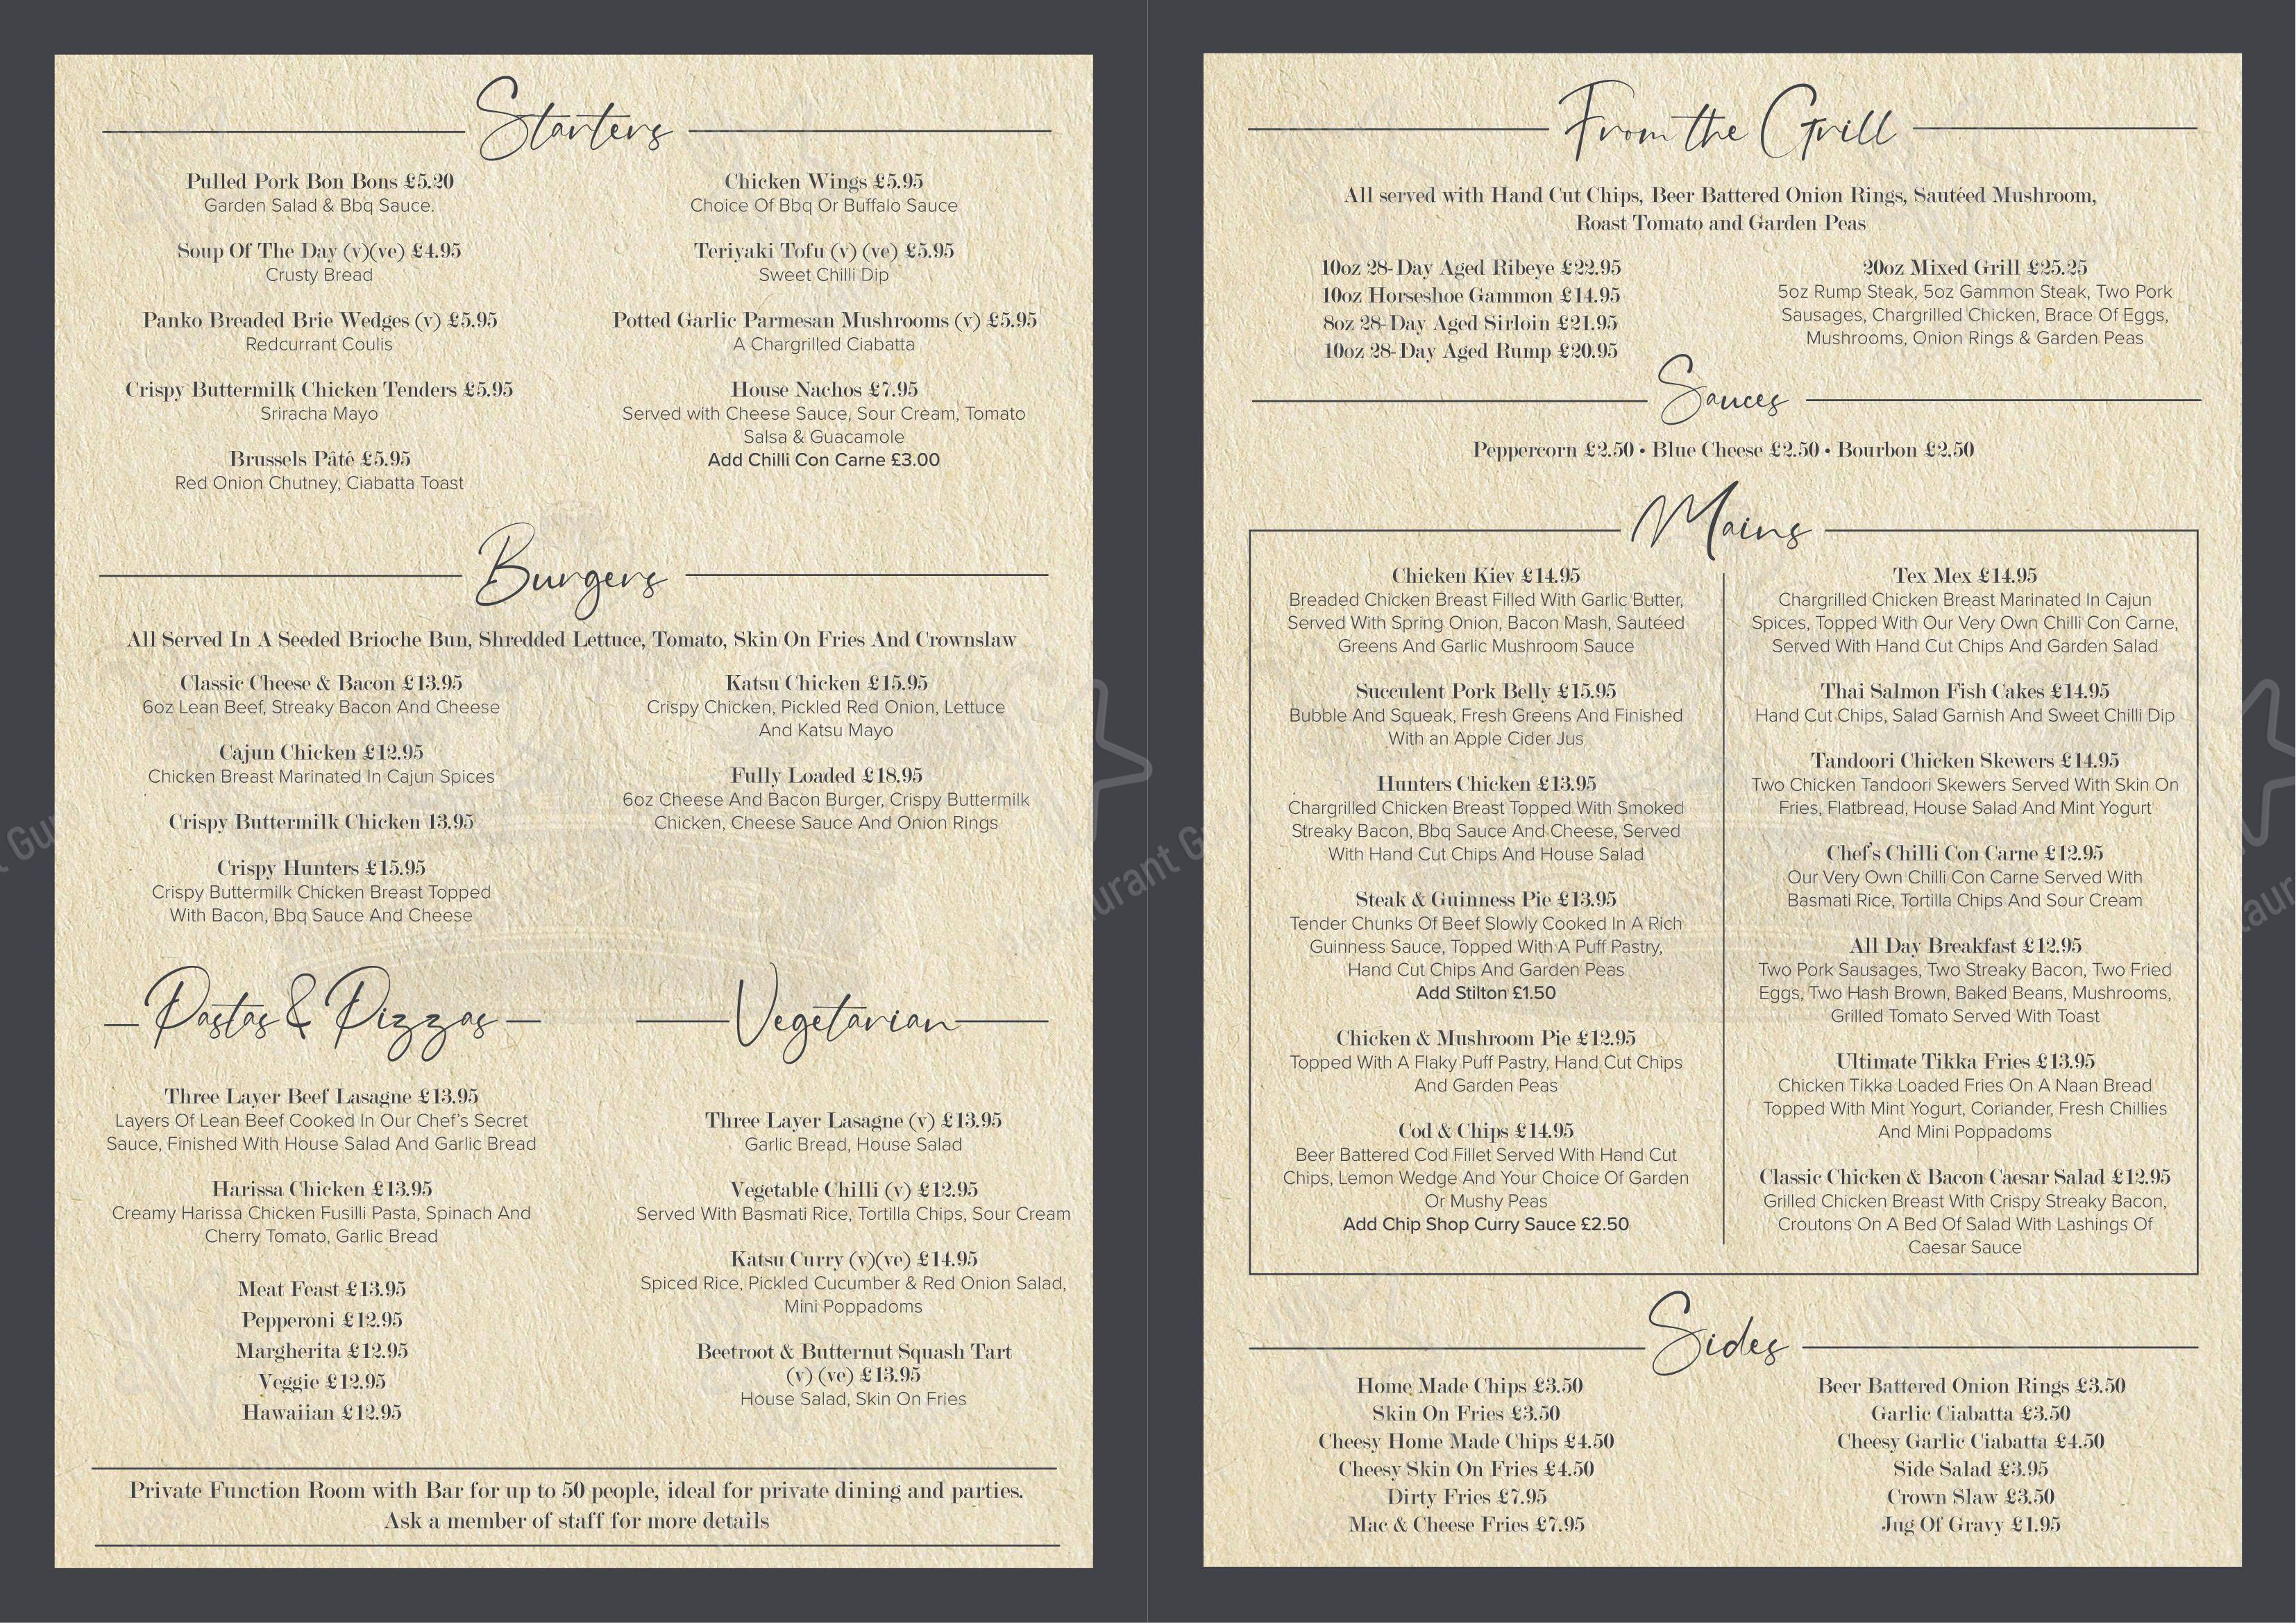 Starters
Pulled Pork Bon Bons £5.20
Garden Salad & Bbq Sauce.
Soup Of The Day (v)(ve) £4.95
Crusty Bread
Panko Breaded Brie Wedges (v) £5.95
Redcurrant Coulis
Crispy Buttermilk Chicken Tenders £5.95
Sriracha Mayo
Brussels Pâté £5.95
Red Onion Chutney, Ciabatta Toast
Chicken Wings £5.95
Choice Of Bbq Or Buffalo Sauce
Teriyaki Tofu (v) (ve) £5.95
Sweet Chilli Dip
Potted Garlic Parmesan Mushrooms (v) £5.95
A Chargrilled Ciabatta
House Nachos £7.95
Served with Cheese Sauce, Sour Cream, Tomato
Salsa & Guacamole
Add Chilli Con Carne £3.00
Burgers
All Served In A Seeded Brioche Bun, Shredded Lettuce, Tomato, Skin On Fries And Crownslaw
Classic Cheese & Bacon £13.95
6oz Lean Beef, Streaky Bacon And Cheese
Cajun Chicken £12.95
Chicken Breast Marinated In Cajun Spices
Crispy Buttermilk Chicken 13.95
Crispy Hunters £15.95
Crispy Buttermilk Chicken Breast Topped
With Bacon, Bbq Sauce And Cheese
Katsu Chicken £15.95
Crispy Chicken, Pickled Red Onion, Lettuce
And Katsu Mayo
Fully Loaded £18.95
6oz Cheese And Bacon Burger, Crispy Buttermilk
Chicken, Cheese Sauce And Onion Rings
Pastas & Pizzas
Three Layer Beef Lasagne £13.95
Layers Of Lean Beef Cooked In Our Chef's Secret
Sauce, Finished With House Salad And Garlic Bread
Harissa Chicken £13.95
Creamy Harissa Chicken Fusilli Pasta, Spinach And
Cherry Tomato, Garlic Bread
Meat Feast £13.95
Pepperoni £12.95
Margherita £12.95
Veggie £12.95
Hawaiian £12.95
Vegetarian
Three Layer Lasagne (v) £13.95
Garlic Bread, House Salad
Vegetable Chilli (v) £12.95
Served With Basmati Rice, Tortilla Chips, Sour Cream
Katsu Curry (v)(ve) £14.95
Spiced Rice, Pickled Cucumber & Red Onion Salad,
Mini Poppadoms
Beetroot & Butternut Squash Tart
(v) (ve) £13.95
House Salad, Skin On Fries
Private Function Room with Bar for up to 50 people, ideal for private dining and parties.
Ask a member of staff for more details
From the Grill
All served with Hand Cut Chips, Beer Battered Onion Rings, Sautéed Mushroom,
Roast Tomato and Garden Peas
10oz 28-Day Aged Ribeye £22.95
10oz Horseshoe Gammon £14.95
8oz 28-Day Aged Sirloin £21.95
10oz 28-Day Aged Rump £20.95
20oz Mixed Grill £25.25
5oz Rump Steak, 5oz Gammon Steak, Two Pork
Sausages, Chargrilled Chicken, Brace Of Eggs,
Mushrooms, Onion Rings & Garden Peas
Sauces
Peppercorn £2.50 • Blue Cheese £2.50 • Bourbon £2.50
Mains
Chicken Kiev £14.95
Breaded Chicken Breast Filled With Garlic Butter,
Served With Spring Onion, Bacon Mash, Sautéed
Greens And Garlic Mushroom Sauce
Succulent Pork Belly £15.95
Bubble And Squeak, Fresh Greens And Finished
With an Apple Cider Jus
Hunters Chicken £13.95
Chargrilled Chicken Breast Topped With Smoked
Streaky Bacon, Bbq Sauce And Cheese, Served
With Hand Cut Chips And House Salad
Steak & Guinness Pie £13.95
Tender Chunks Of Beef Slowly Cooked In A Rich
Guinness Sauce, Topped With A Puff Pastry,
Hand Cut Chips And Garden Peas
Add Stilton £1.50
Chicken & Mushroom Pie £12.95
Topped With A Flaky Puff Pastry, Hand Cut Chips
And Garden Peas
Cod & Chips £14.95
Beer Battered Cod Fillet Served With Hand Cut
Chips, Lemon Wedge And Your Choice Of Garden
Or Mushy Peas
Add Chip Shop Curry Sauce £2.50
Tex Mex £14.95
Chargrilled Chicken Breast Marinated In Cajun
Spices, Topped With Our Very Own Chilli Con Carne,
Served With Hand Cut Chips And Garden Salad
Thai Salmon Fish Cakes £14.95
Hand Cut Chips, Salad Garnish And Sweet Chilli Dip
Tandoori Chicken Skewers £14.95
Two Chicken Tandoori Skewers Served With Skin On
Fries, Flatbread, House Salad And Mint Yogurt
Chef's Chilli Con Carne £12.95
Our Very Own Chilli Con Carne Served With
Basmati Rice, Tortilla Chips And Sour Cream
All Day Breakfast £12.95
Two Pork Sausages, Two Streaky Bacon, Two Fried
Eggs, Two Hash Brown, Baked Beans, Mushrooms,
Grilled Tomato Served With Toast
Ultimate Tikka Fries £13.95
Chicken Tikka Loaded Fries On A Naan Bread
Topped With Mint Yogurt, Coriander, Fresh Chillies
And Mini Poppadoms
Classic Chicken & Bacon Caesar Salad £12.95
Grilled Chicken Breast With Crispy Streaky Bacon,
Croutons On A Bed Of Salad With Lashings Of
Caesar Sauce
Sides
Home Made Chips £3.50
Skin On Fries £3.50
Cheesy Home Made Chips £4.50
Cheesy Skin On Fries £4.50
Dirty Fries £7.95
Mac & Cheese Fries £7.95
Beer Battered Onion Rings £3.50
Garlic Ciabatta £3.50
Cheesy Garlic Ciabatta £4.50
Side Salad £3.95
Crown Slaw £3.50
Jug Of Gravy £1.95